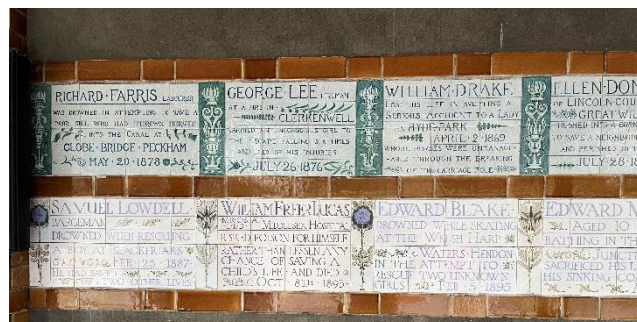 RICHARD FARRIS LABOURER
WAS DROWNED IN ATTEMPTING TO SAVE A
POOR GIRL WHO HAD THROWN HERSELF
INTO THE CANAL AT
GLOBE BRIDGE PECKHAM
MAY 20 1878
GEORGE LEE FIREMAN
AT A FIRE IN
CLERKENWELL
CARRIED AN UNCONSCIOUS GIRL TO
THE ESCAPE FALLING SIX TIMES
AND DIED OF HIS INJURIES
JULY 26 1876
WILLIAM DRAKE
LOST HIS LIFE IN AVERTING A
SERIOUS ACCIDENT TO A LADY
IN HYDE PARK
APRIL 2 1869
WHOSE HORSES WERE UNMANAGE
ABLE THROUGH THE BREAKING
OF THE CARRIAGE POLE
ELLEN DON
OF LINCOLN COU
GREAT WI
RUSHED INTO A BURN
TO SAVE A NEIGHBOU
AND PERISHED IN T
JULY 28
SAMUEL LOWDELL
BARGEMAN
DROWNED WHEN RESCUING
A BOY AT BLACKFRIARS
FEB 25 1887
HE HAD SAVED
TWO OTHER LIVES
WILLIAM FREER LUCAS
MIDDLESEX HOSPITAL
RISKED POISON FOR HIMSELF
RATHER THAN LESSEN ANY
CHANCE OF SAVING A
CHILD'S LIFE AND DIED
OCT 8TH 1893
EDWARD BLAKE
DROWNED WHILE SKATING
AT THE WELSH HARP
WATERS HENDON
IN THE ATTEMPT TO
RESCUE TWO UNKNOWN
GIRLS FEB 5 1895
EDWARD M
AGED 10
BATHING IN TH
JUNCT
SACRIFICED HIS L
HIS SINKING